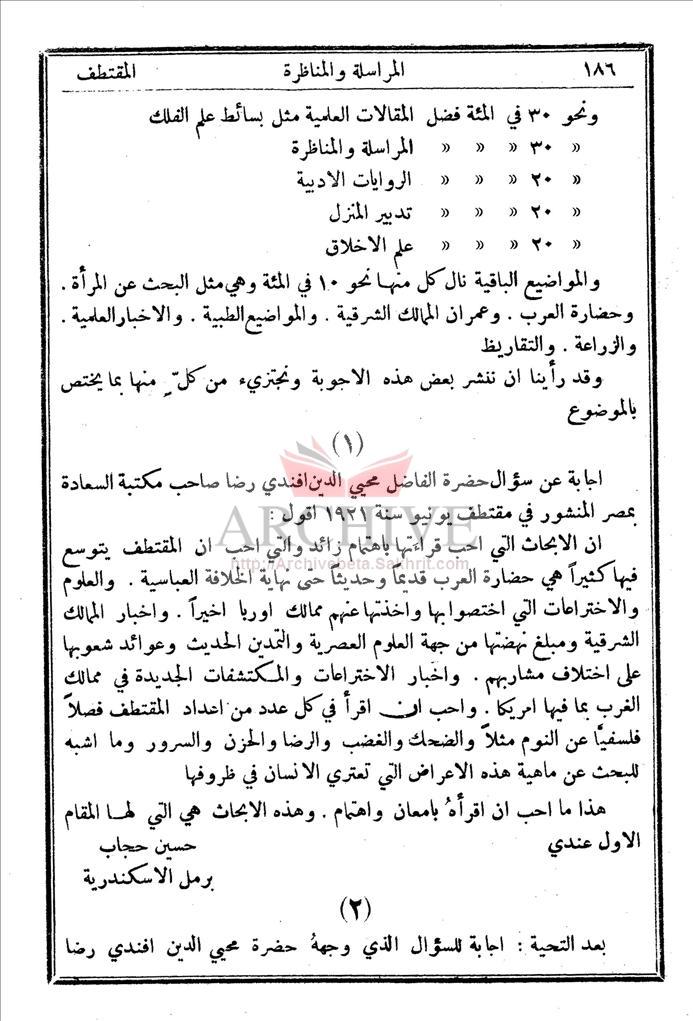 ١٨٦ المراسلة والمناظرة المقتطف
ونحو ٣٠ في المئة فضل المقالات العلمية مثل بسائط علم الفلك
» ٣٠ » » » » المراسلة والمناظرة
» ٢٠ » » » » الروايات الادبية
» ٢٠ » » » » تدبير المنزل
» ٢٠ » » » » علم الاخلاق
والمواضيع الباقية نال كل منها نحو ١٠ في المئة وهي مثل البحث عن المرأة .
وحضارة العرب . وعمران الممالك الشرقية . والمواضيع الطبية . والاخبار العلمية .
والزراعة . والتقاريظ
وقد رأينا ان ننشر بعض هذه الاجوبة ونجتزيء من كلٍّ منها بما يختص
بالموضوع
(١)
اجابة عن سؤال حضرة الفاضل محيي الدين افندي رضا صاحب مكتبة السعادة
بمصر المنشور في مقتطف يونيو سنة ١٩٢١ اقول :
ان الابحاث التي احب قراءتها باهتمام زائد والتي احب ان المقتطف يتوسع
فيها كثيراً هي حضارة العرب قديماً وحديثاً حتى نهاية الخلافة العباسية . والعلوم
والاختراعات التي اختصوا بها واخذتها عنهم ممالك اوربا اخيراً . واخبار الممالك
الشرقية ومبلغ نهضتها من جهة العلوم العصرية والتمدين الحديث وعوائد شعوبها
على اختلاف مشاربهم . واخبار الاختراعات والمكتشفات الجديدة في ممالك
الغرب بما فيها امريكا . واحب ان اقرأ في كل عدد من اعداد المقتطف فصلاً
فلسفيّاً عن النوم مثلاً والضحك والغضب والرضا والحزن والسرور وما اشبه
للبحث عن ماهية هذه الاعراض التي تعتري الانسان في ظروفها
هذا ما احب ان اقرأهُ بامعان واهتمام . وهذه الابحاث هي التي لها المقام
الاول عندي حسين حجاب
برمل الاسكندرية
(٢)
بعد التحية : اجابة للسؤال الذي وجههُ حضرة محيي الدين افندي رضا
ARCHIVE
http://Archivebeta.Sakhrit.com